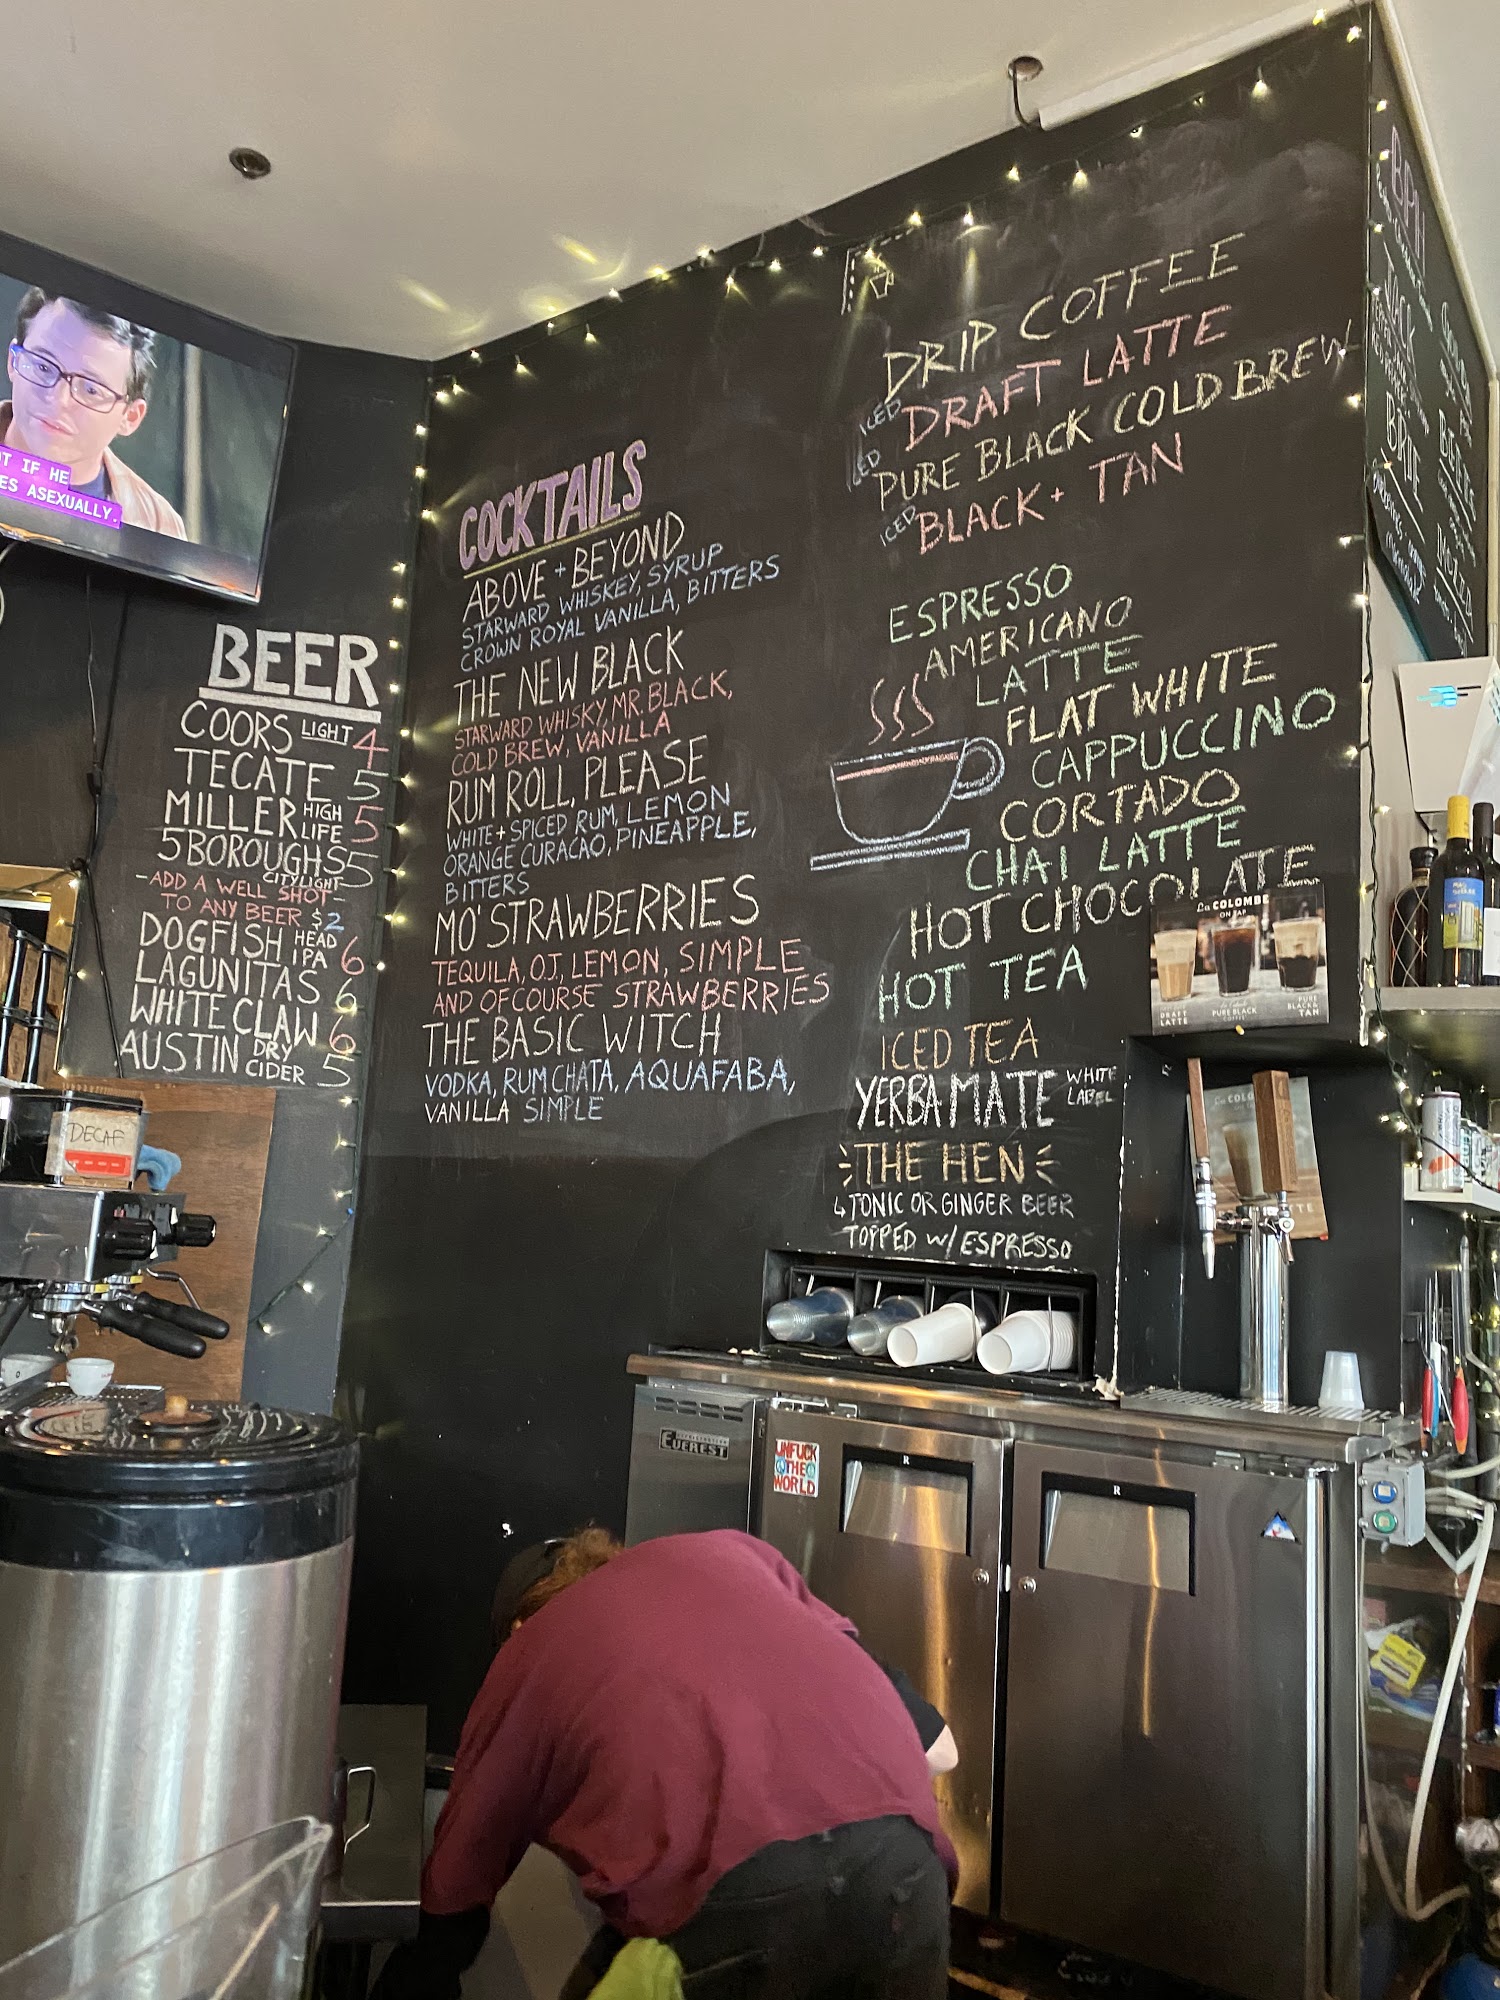 HE
ASEXUALLY.
BEER
COORS LIGHT 4
TECATE 5
MILLER HIGH LIFE 5
5 BOROUGHS 5
CITY LIGHT
-ADD A WELL SHOT-
TO ANY BEER $2
DOGFISH HEAD IPA 6
LAGUNITAS 6
WHITE CLAW 6
AUSTIN DRY CIDER 5
DECAF
COCKTAILS
ABOVE + BEYOND
STARWARD WHISKEY, SYRUP
CROWN ROYAL VANILLA, BITTERS
THE NEW BLACK
STARWARD WHISKY, MR. BLACK,
COLD BREW, VANILLA
RUM ROLL, PLEASE
WHITE + SPICED RUM, LEMON
ORANGE CURACAO, PINEAPPLE,
BITTERS
MO' STRAWBERRIES
TEQUILA, O.J., LEMON, SIMPLE
AND OFCOURSE STRAWBERRIES
THE BASIC WITCH
VODKA, RUMCHATA, AQUAFABA,
VANILLA SIMPLE
DRIP COFFEE
ICED DRAFT LATTE
PURE BLACK COLD BREW
ICED BLACK + TAN
ESPRESSO
AMERICANO
LATTE
FLAT WHITE
CAPPUCCINO
CORTADO
CHAI LATTE
HOT CHOCOLATE
HOT TEA
ICED TEA
YERBA MATE WHITE LABEL
THE HEN
TONIC OR GINGER BEER
TOPPED W/ ESPRESSO
La COLOMBE
ON TAP
DRAFT LATTE
PURE BLACK
COFFEE
PURE BLACK & TAN
JACK
BRIE
EVEREST
UNFUCK
THE
WORLD